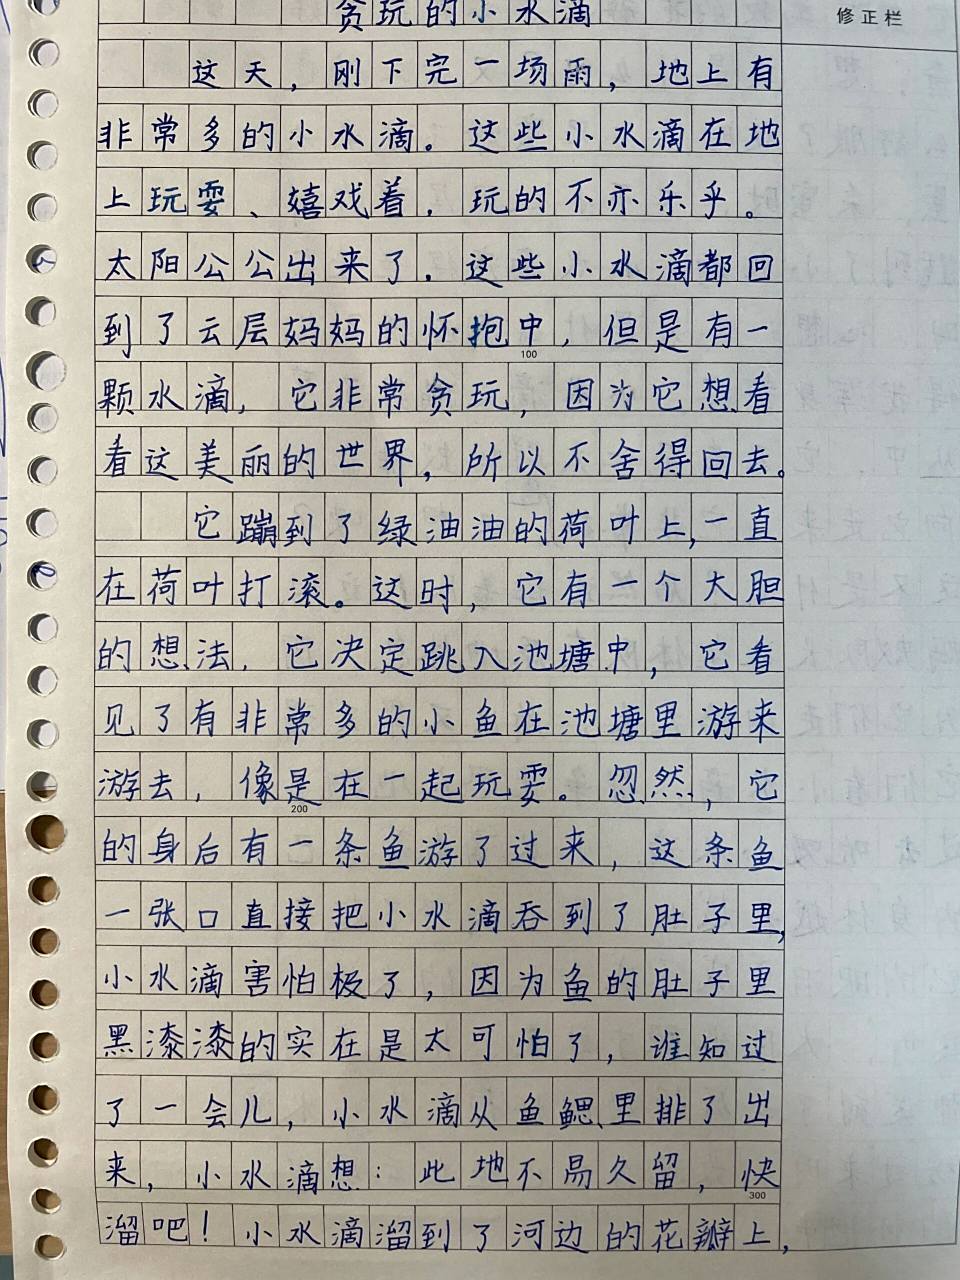 贪玩的小水滴
修正栏
这天，刚下完一场雨，地上有
非常多的小水滴。这些小水滴在地
上玩耍、嬉戏着，玩的不亦乐乎。
太阳公公出来了，这些小水滴都回
到了云层妈妈的怀抱中，但是有一
100
颗水滴，它非常贪玩，因为它想看
看这美丽的世界，所以不舍得回去。
它蹦到了绿油油的荷叶上，一直
在荷叶打滚。这时，它有一个大胆
的想法，它决定跳入池塘中，它看
见了有非常多的小鱼在池塘里游来
游去，像是在一起玩耍。忽然，它
200
的身后有一条鱼游了过来，这条鱼
一张口直接把小水滴吞到了肚子里，
小水滴害怕极了，因为鱼的肚子里
黑漆漆的实在是太可怕了，谁知过
了一会儿，小水滴从鱼鳃里排了出
来，小水滴想：此地不易久留，快
300
溜吧！小水滴溜到了河边的花瓣上，